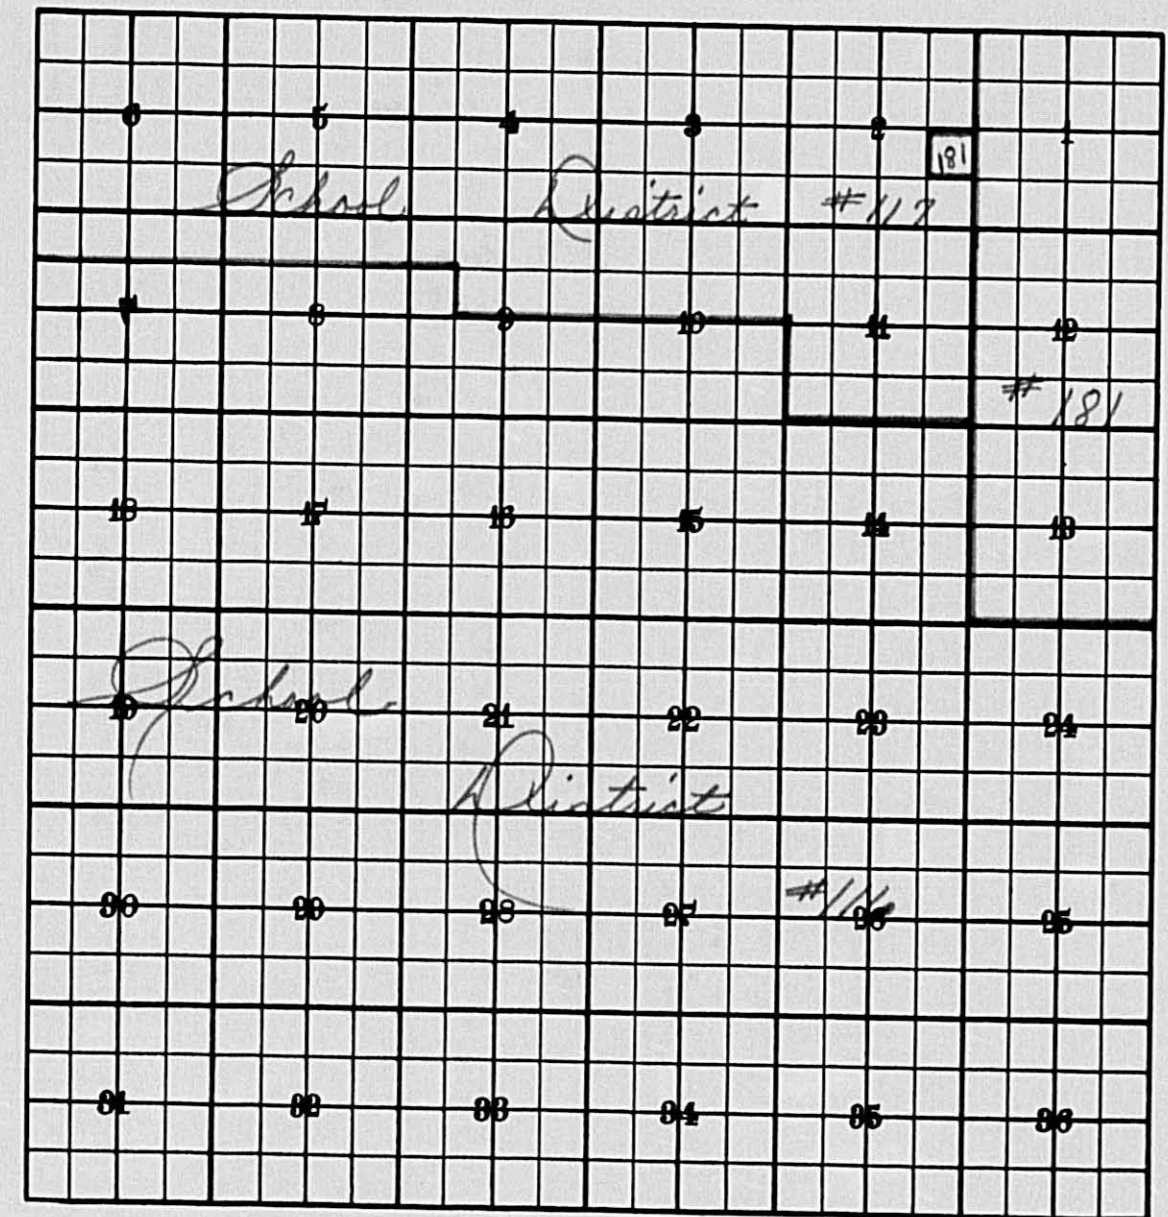 6 5 4 3 2 1
181
School District #117
7 8 9 10 11 12
# 181
18 17 16 15 14 13
School
19 20 21 22 23 24
District
#116
30 29 28 27 26 25
31 32 33 34 35 36